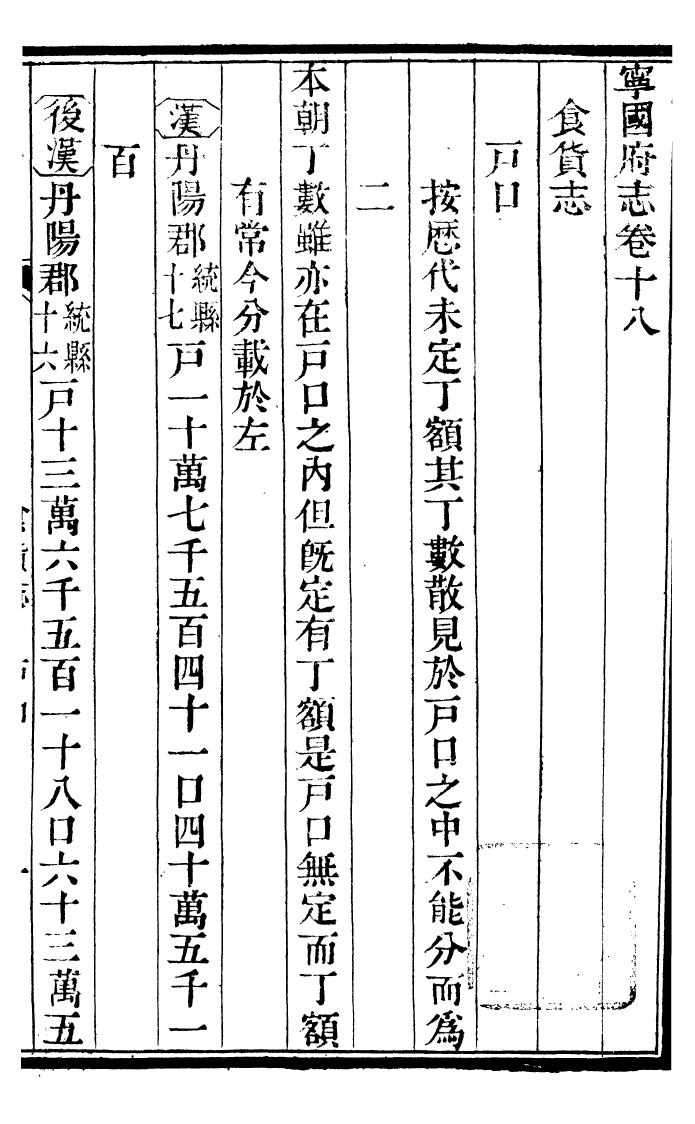 寧國府志卷十八
食貨志
戸口
按歴代未定丁額其丁數散見於戸口之中不能分而爲
二
本朝丁數雖亦在戸口之内但旣定有丁額是戸口無定而丁額
有常今分載於左
漢丹陽郡統縣十七戸一十萬七千五百四十一口四十萬五千一
百
後漢丹陽郡統縣十六戸十三萬六千五百一十八口六十三萬五